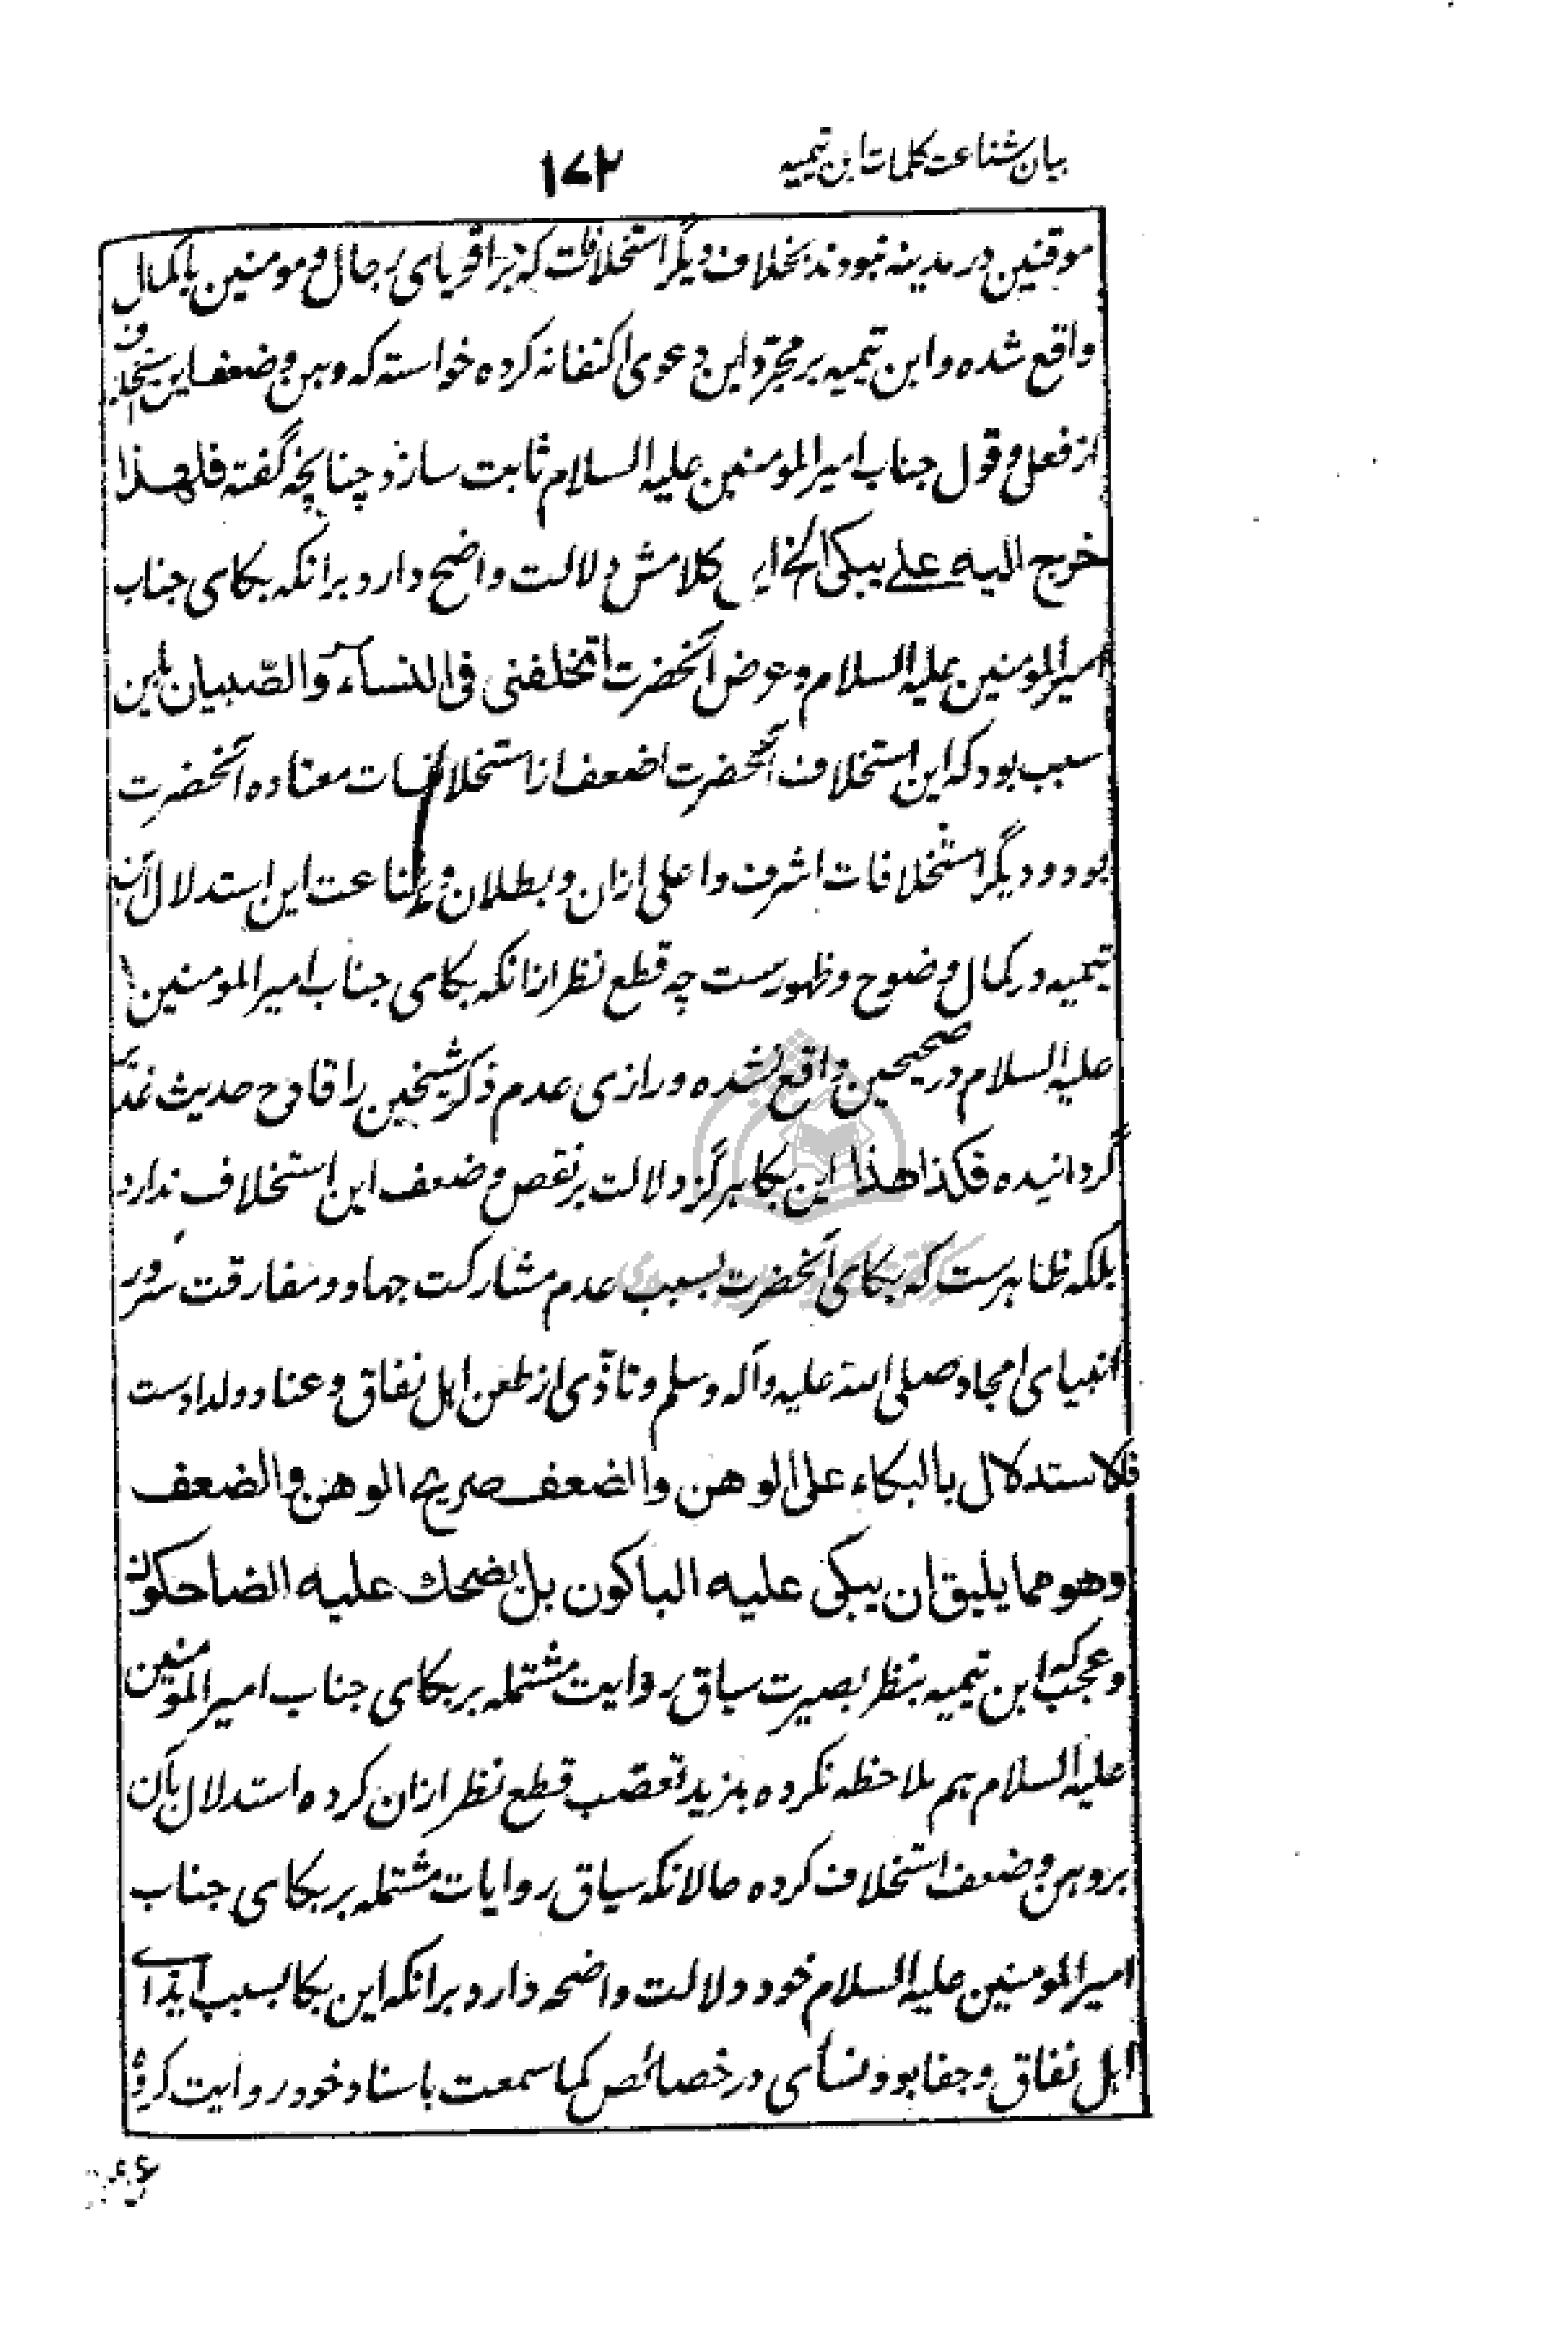 بیان شناعت کلمات ابن تیمیه
۱۷۲
موقنین در مدینه نبودند بخلاف دیگر استخلافات که بر اقویای رجال و مومنین باکمال
واقع شده و ابن تیمیه بر مجرّد این دعوی اکتفا نه کرده خواسته که وهن و ضعف این استخلاف
از فعل و قول جناب امیرالمومنین علیه السلام ثابت سازد چنانچه گفته فلهذا
خرج الیه علے یبکی الخ این کلامش دلالت واضح دارد برانکه بکای جناب
امیرالمومنین علیه السلام و عرض آنحضرت اتخلفنی فی النساء والصّبیان باین
سبب بود که این استخلاف آنحضرت اضعف از استخلافات معتاده آنحضرت
بود و دیگر استخلافات اشرف و اعلی ازان و بطلان و شناعت این استدلال ابن
تیمیه در کمال وضوح و ظهورست چه قطع نظر ازانکه بکای جناب امیرالمومنین
علیه السلام در صحیحین واقع نشده و رازی عدم ذکر شیخین را قادح حدیث غدیر
گردانیده فکذا هذا این بکا هرگز دلالت بر نقص و ضعف این استخلاف ندارد
بلکه ظاهرست که بکای آنحضرت بسبب عدم مشارکت جهاد و مفارقت سرور
انبیای امجاد صلی الله علیه و آله وسلم و تاذّی از طعن اهل نفاق و عناد و لدادست
فلاستدلال بالبکاء علی الوهن والضعف صریح الوهن والضعف
وهو مما یلیق ان یبکی علیه الباکون بل یضحك علیه الضاحکون
و عجب که ابن تیمیه بنظر بصیرت سیاق روایت مشتمله بر بکای جناب امیرالمومنین
علیه السلام هم ملاحظه نکرده بمزید تعصّب قطع نظر ازان کرده استدلال بآن
بر وهن و ضعف استخلاف کرده حالانکه سیاق روایات مشتمله بر بکای جناب
امیرالمومنین علیه السلام خود دلالت واضحه دارد برانکه این بکا بسبب ایذاے
اهل نفاق و جفا بود و نسائی در خصائص کما سمعت باسناد خود روایت کرده